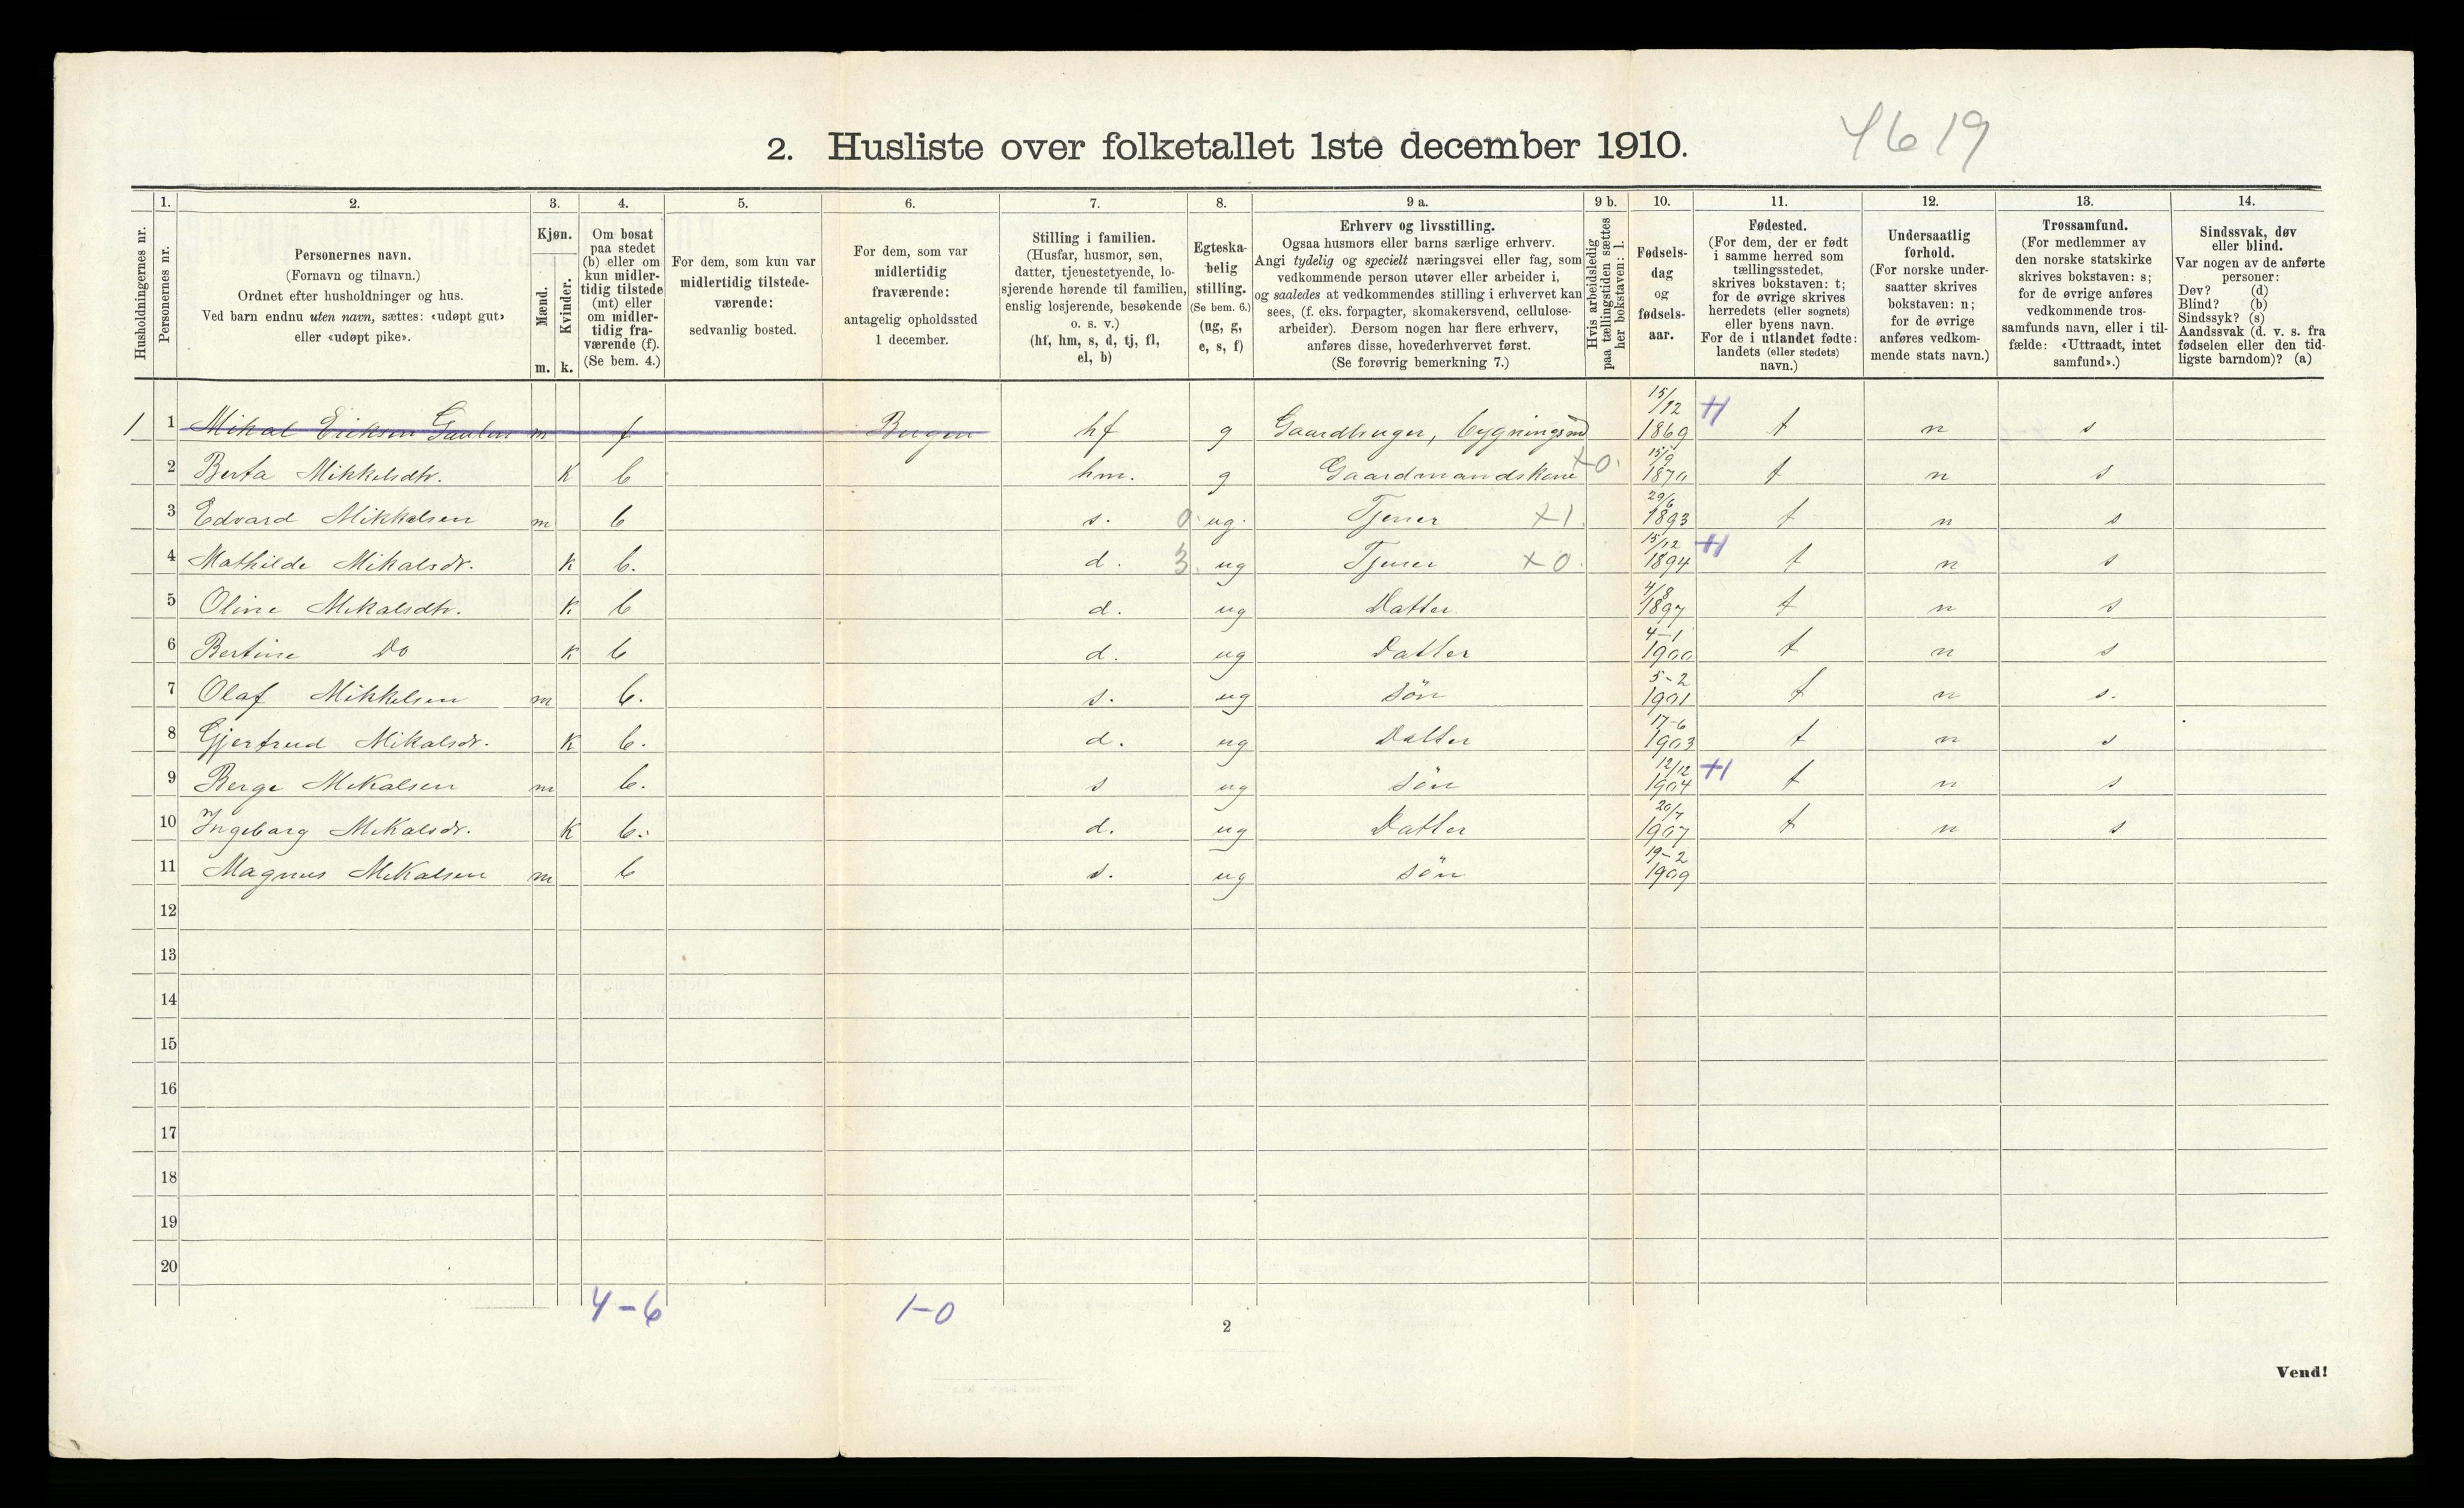 4619
2. Husliste over folketallet 1ste december 1910.
Husholdningernes nr.
1. Personernes nr.
2. Personernes navn.
(Fornavn og tilnavn.)
Ordnet efter husholdninger og hus.
Ved barn endnu uten navn, sættes: «udøpt gut»
eller «udøpt pike».
3. Kjøn.
Mænd. m.
Kvinder. k.
4. Om bosat
paa stedet
(b) eller om
kun midler-
tidig tilstede
(mt) eller
om midler-
tidig fra-
værende (f).
(Se bem. 4.)
5. For dem, som kun var
midlertidig tilstede-
værende:
sedvanlig bosted.
6. For dem, som var
midlertidig
fraværende:
antagelig opholdssted
1 december.
7. Stilling i familien.
(Husfar, husmor, søn,
datter, tjenestetyende, lo-
sjerende hørende til familien,
enslig losjerende, besøkende
o. s. v.)
(hf, hm, s, d, tj, fl,
el, b)
8. Egteska-
belig
stilling.
(Se bem. 6.)
(ug, g,
e, s, f)
9 a. Erhverv og livsstilling.
Ogsaa husmors eller barns særlige erhverv.
Angi tydelig og specielt næringsvei eller fag, som
vedkommende person utøver eller arbeider i,
og saaledes at vedkommendes stilling i erhvervet kan
sees, (f. eks. forpagter, skomakersvend, cellulose-
arbeider). Dersom nogen har flere erhverv,
anføres disse, hovederhvervet først.
(Se forøvrig bemerkning 7.)
9 b. Hvis arbeidsledig
paa tællingstiden sættes
her bokstaven: l.
10. Fødsels-
dag
og
fødsels-
aar.
11. Fødested.
(For dem, der er født
i samme herred som
tællingsstedet,
skrives bokstaven: t;
for de øvrige skrives
herredets (eller sognets)
eller byens navn.
For de i utlandet fødte:
landets (eller stedets)
navn.)
12. Undersaatlig
forhold.
(For norske under-
saatter skrives
bokstaven: n;
for de øvrige
anføres vedkom-
mende stats navn.)
13. Trossamfund.
(For medlemmer av
den norske statskirke
skrives bokstaven: s;
for de øvrige anføres
vedkommende tros-
samfunds navn, eller i til-
fælde: «Uttraadt, intet
samfund».)
14. Sindssvak, døv
eller blind.
Var nogen av de anførte
personer:
Døv? (d)
Blind? (b)
Sindssyk? (s)
Aandssvak (d. v. s. fra
fødselen eller den tid-
ligste barndom)? (a)
1 1 Mikal Eriksen m f hf g Gaardbruger, 15/12 1869 t n s
2 Berta Mikkelsdtr. K b hm. g Gaardmandskone +0 15/9 1870 t n s
3 Edvard Mikkelsen m b s. 0 ug. Tjener +1 29/6 1893 t n s
4 Mathilde Mikalsdr. K b. d. 3 ug Tjener +0 15/12 1894 t n s
5 Oline Mikalsdtr. K b d. ug Datter 4/8 1897 t n s
6 Bertine Do K b d. ug Datter 4-1 1900 t n s
7 Olaf Mikkelsen m b. s. ug Søn 5-2 1901 t n s.
8 Gjertrud Mikalsdr. K b. d. ug Datter 17-6 1903 t n s
9 Berge Mikalsen m b. s ug Søn 12/12 1904 t n s
10 Ingeborg Mikalsdr. K b. d. ug Datter 20/7 1907 t n s
11 Magnus Mikalsen m b s. ug Søn 19-2 1909
12
13
14
15
16
17
18
19
20
4-6 1-0
2
Vend!